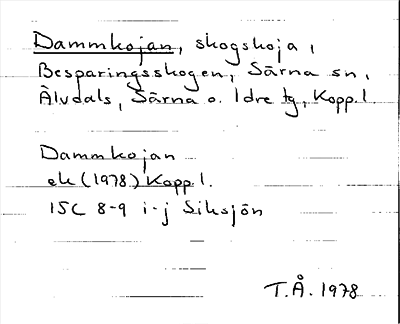 Dammkojan, skogskoja,
Besparingsskogen, Särna sn,
Älvdals, Särna o. Idre tg, Kopp.l.
Dammkojan
ek (1978) Kopp.l.
15C 8-9 i-j Siksjön
T.Å. 1978